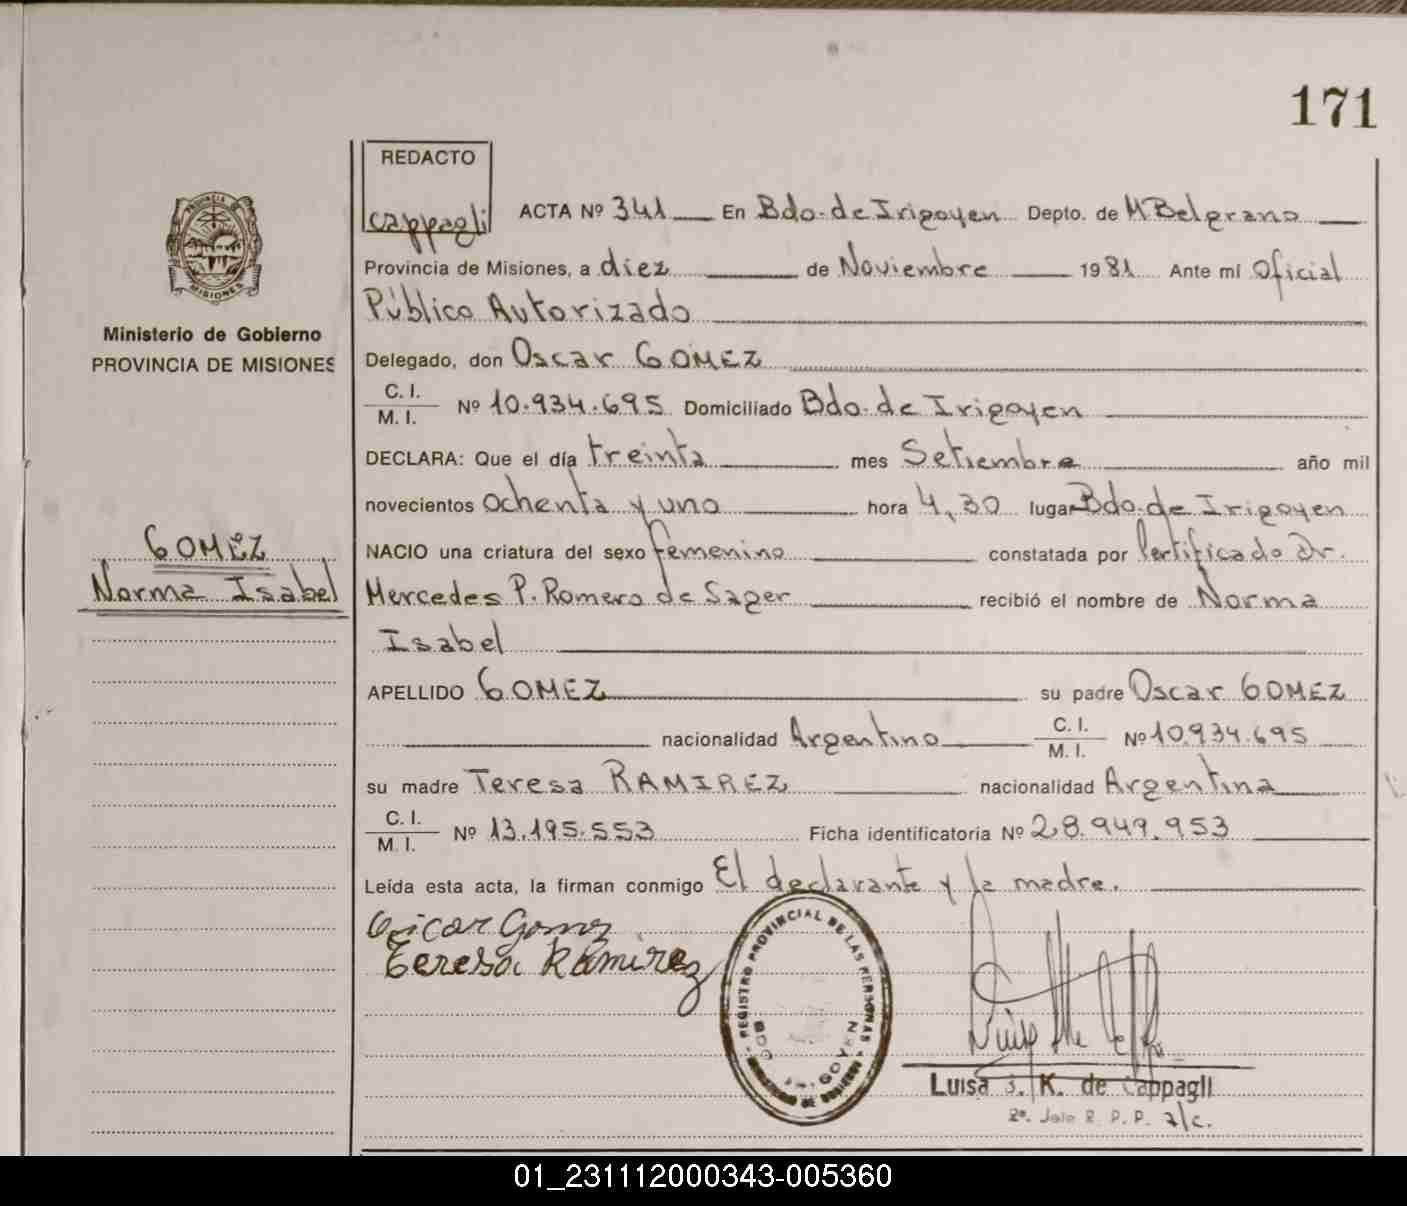 171
REDACTO
Cappagli
ACTA Nº 341 En Bdo. de Irigoyen Depto. de M Belgrano
Provincia de Misiones, a diez de Noviembre 1981 Ante mi Oficial
Público Autorizado
Delegado, don Oscar GOMEZ
C. I.
M. I. Nº 10.934.695 Domiciliado Bdo. de Irigoyen
DECLARA: Que el día treinta mes Setiembre año mil
novecientos ochenta y uno hora 4,30 lugar Bdo. de Irigoyen
NACIO una criatura del sexo femenino constatada por Certificado Dr.
Mercedes P. Romero de Sager recibió el nombre de Norma
Isabel
APELLIDO GOMEZ su padre Oscar GOMEZ
nacionalidad Argentino C. I.
M. I. Nº 10.934.695
su madre Teresa RAMIREZ nacionalidad Argentina
C. I.
M. I. Nº 13.195.553 Ficha identificatoria Nº 28.949.953
Leída esta acta, la firman conmigo El declarante y la madre.
Oscar Gomez
Teresa Ramirez
REGISTRO PROVINCIAL DE LAS PERSONAS
MINISTERIO DE GOBIERNO
BDO. IRIGOYEN
Luisa S. K. de Cappagli
2º. Jefe R. P. P. a/c.
PROVINCIA DE
MISIONES
Ministerio de Gobierno
PROVINCIA DE MISIONES
GOMEZ
Norma Isabel
01_231112000343-005360